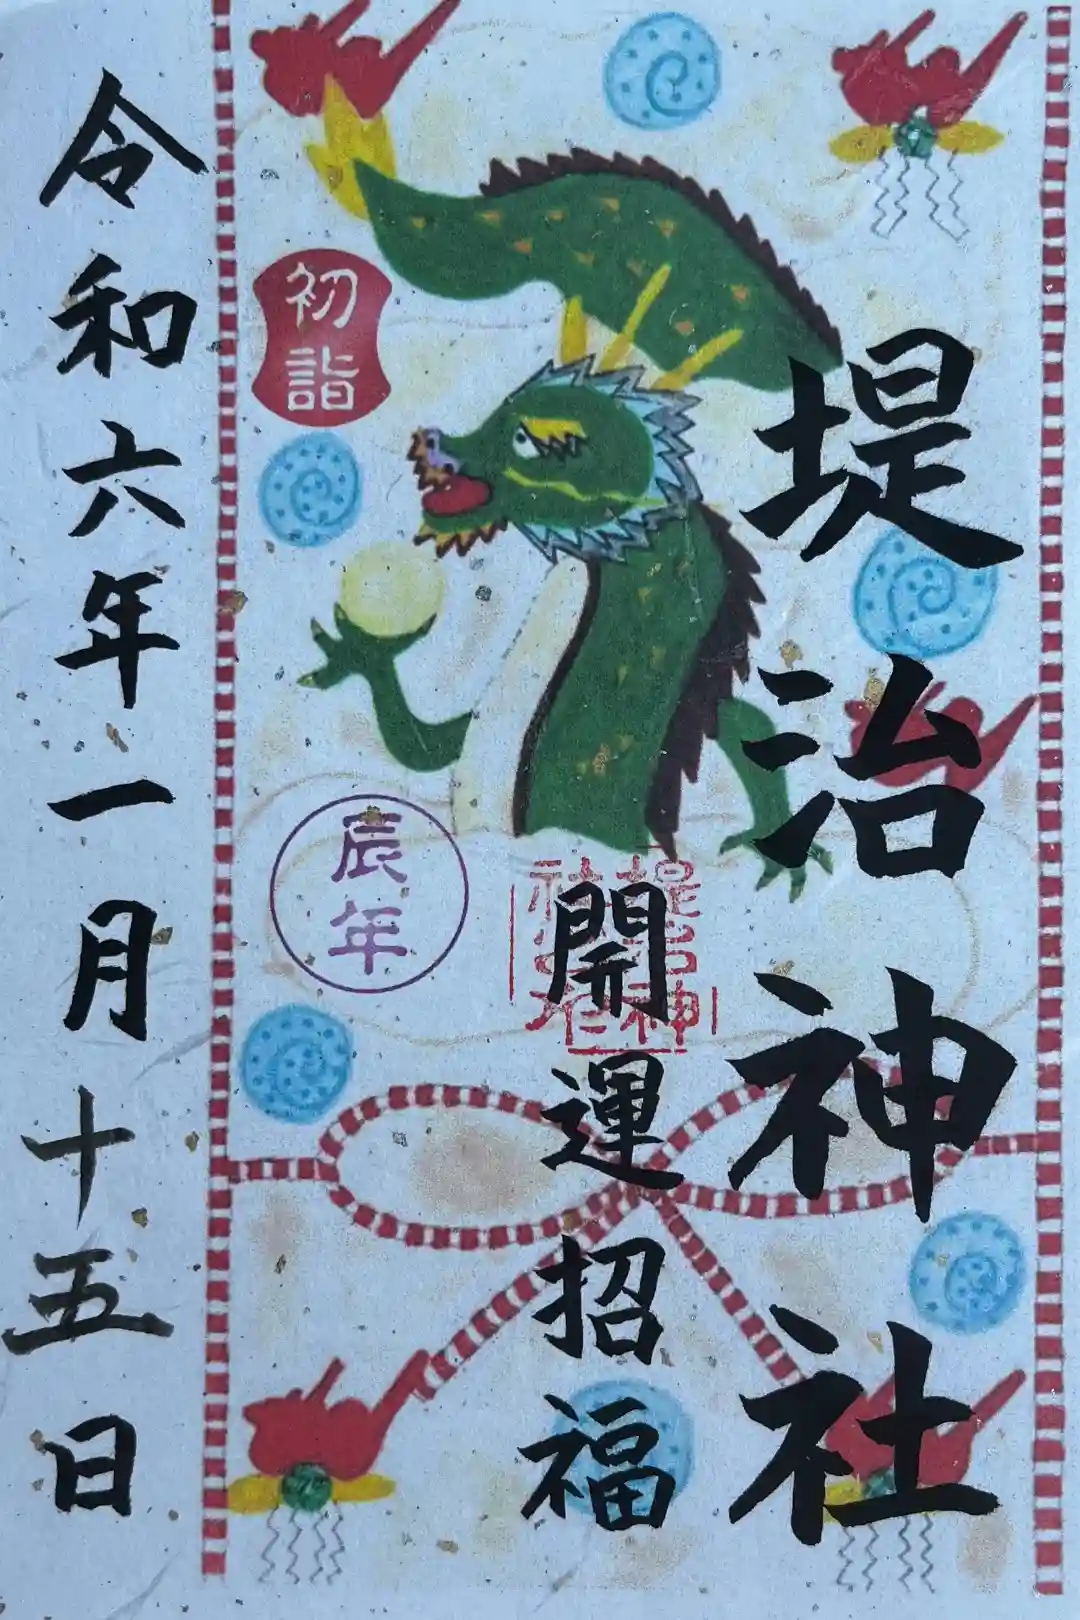 堤治神社
開運招福
初詣
辰年
令和六年一月十五日